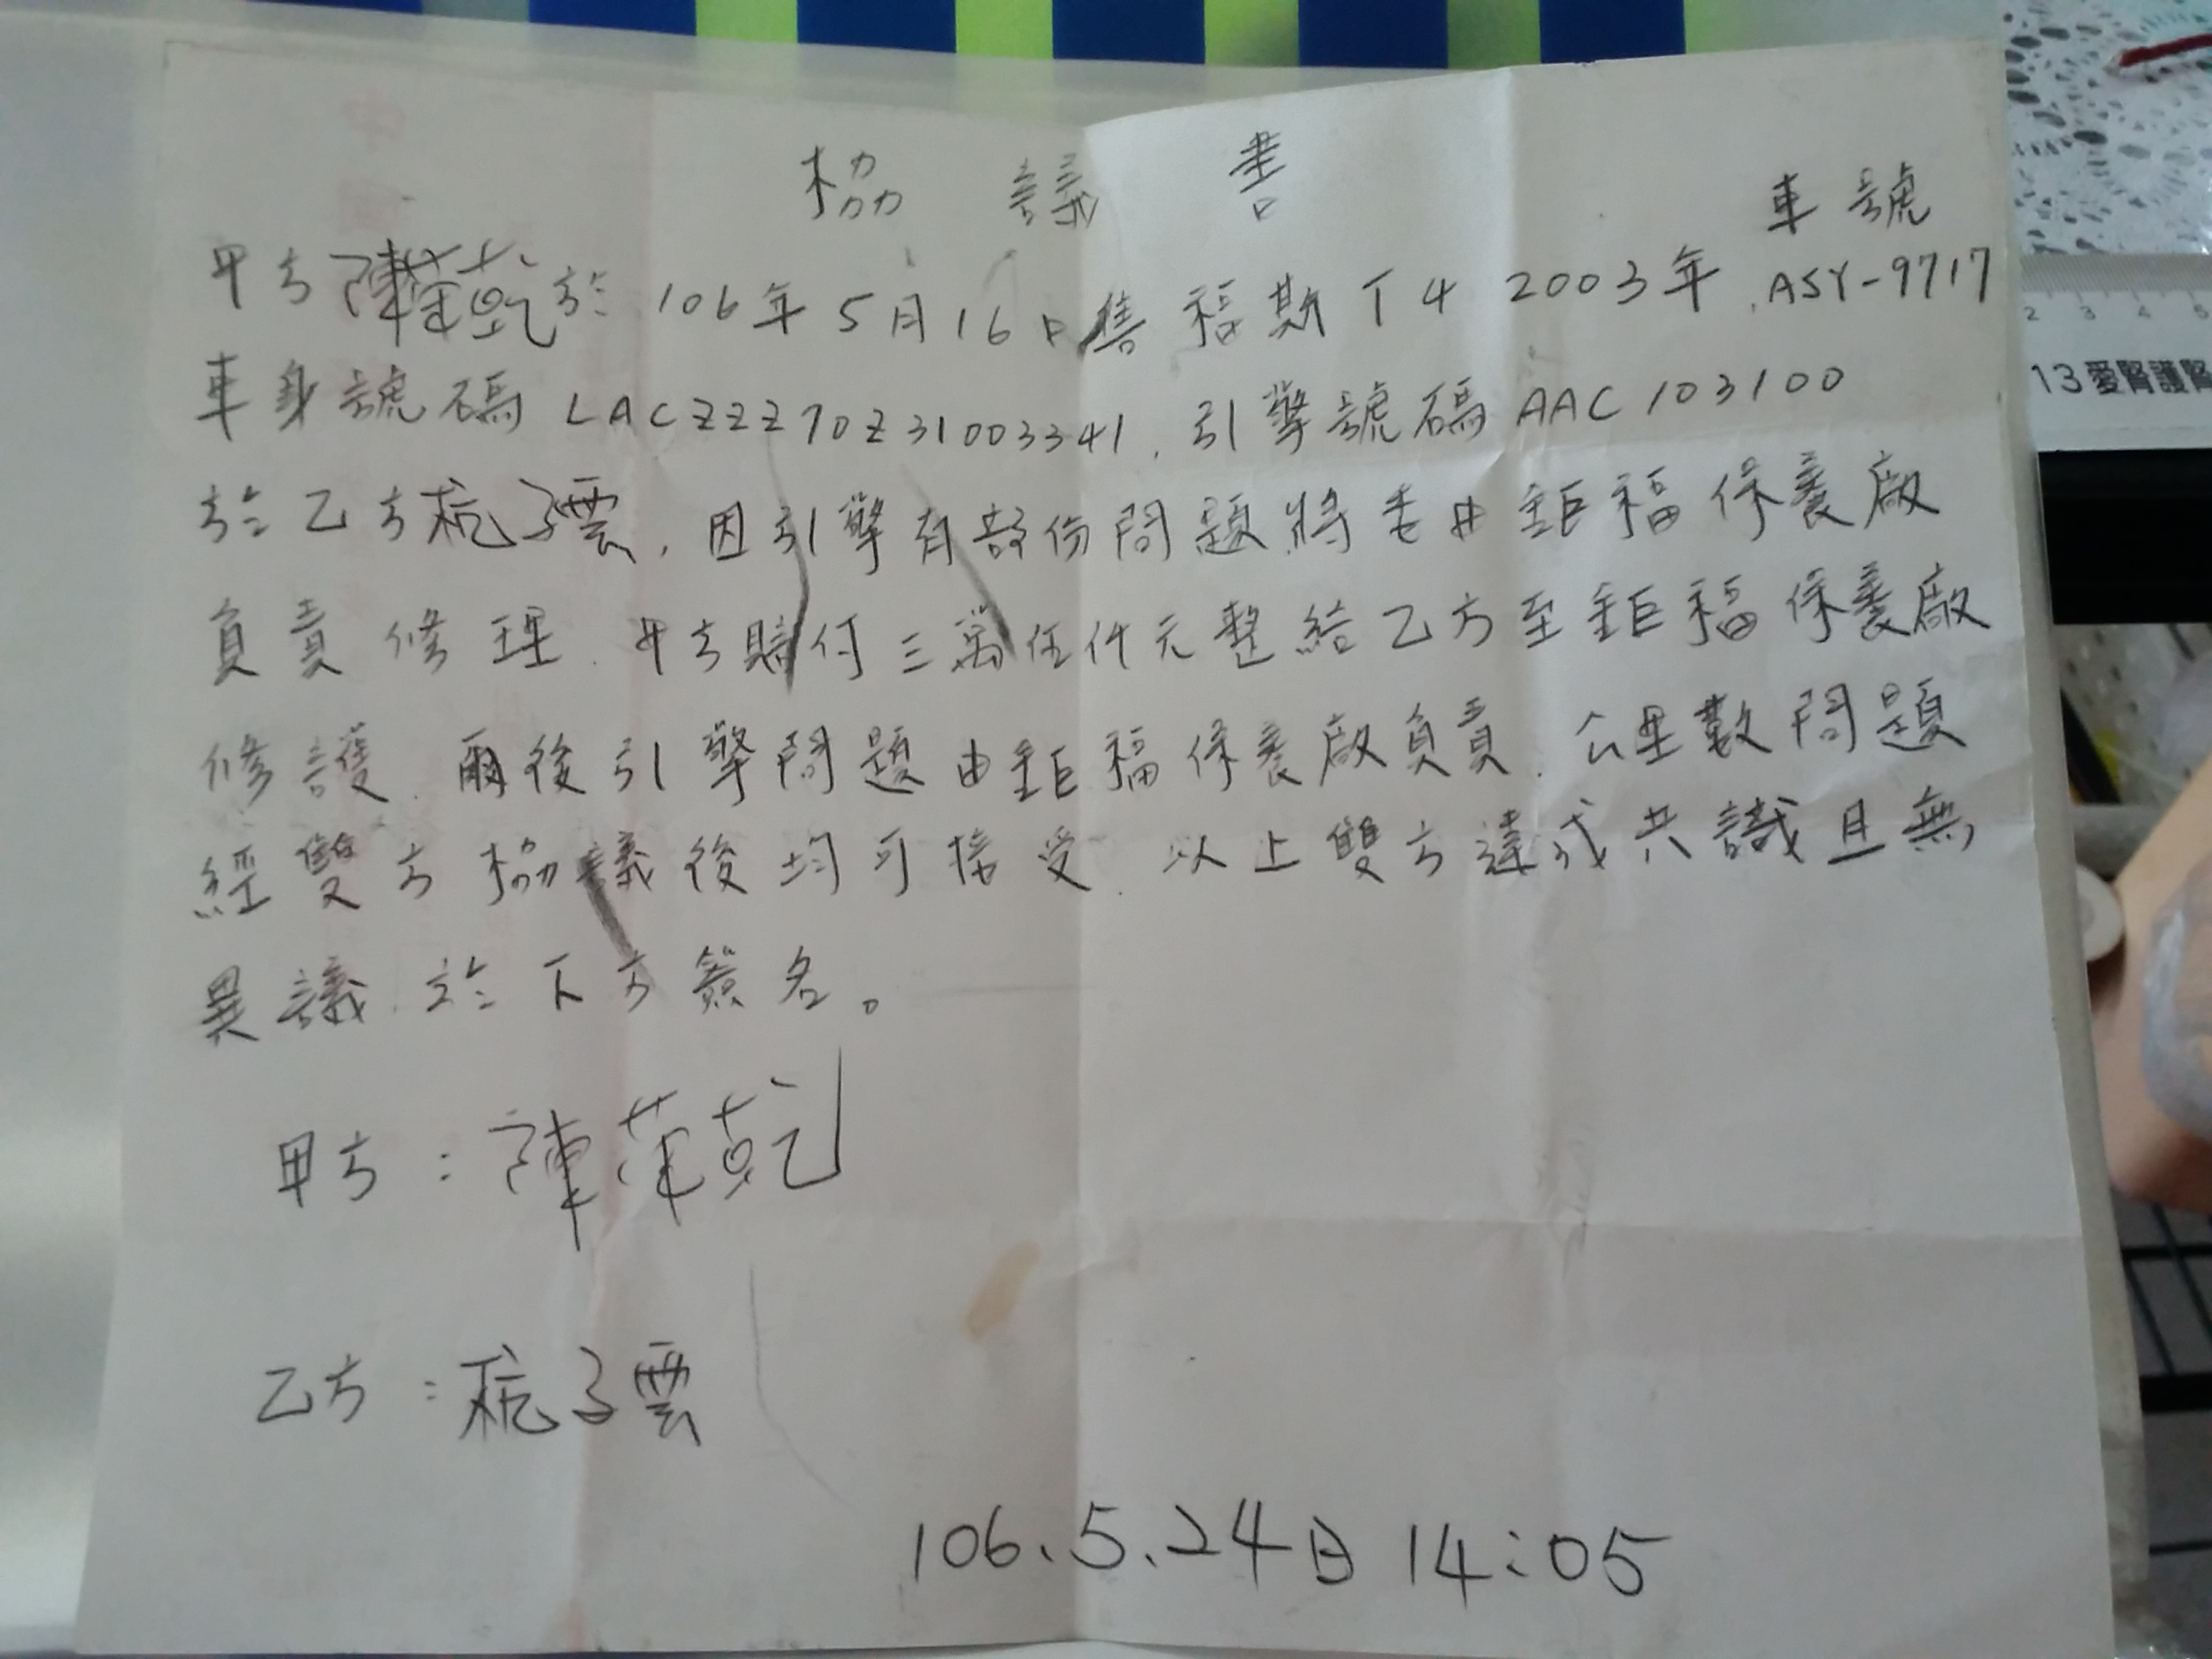 協議書
車號
甲方陳荣乾於106年5月16日售福斯T4 2003年.ASY-9717
車身號碼LACZZZ70Z31003341.引擎號碼AAC103100
於乙方杭子雲.因引擎有部份問題.將委由鉅福保養廠
負責修理.甲方賠付三萬伍仟元整給乙方至鉅福保養廠
修護.爾後引擎問題由鉅福保養廠負責.公里數問題
經雙方協議後均可接受.以上雙方達成共識且無
異議.於下方簽名。
甲方:陳荣乾
乙方:杭子雲
106.5.24日14:05
2 3 4 5
13愛腎護腎